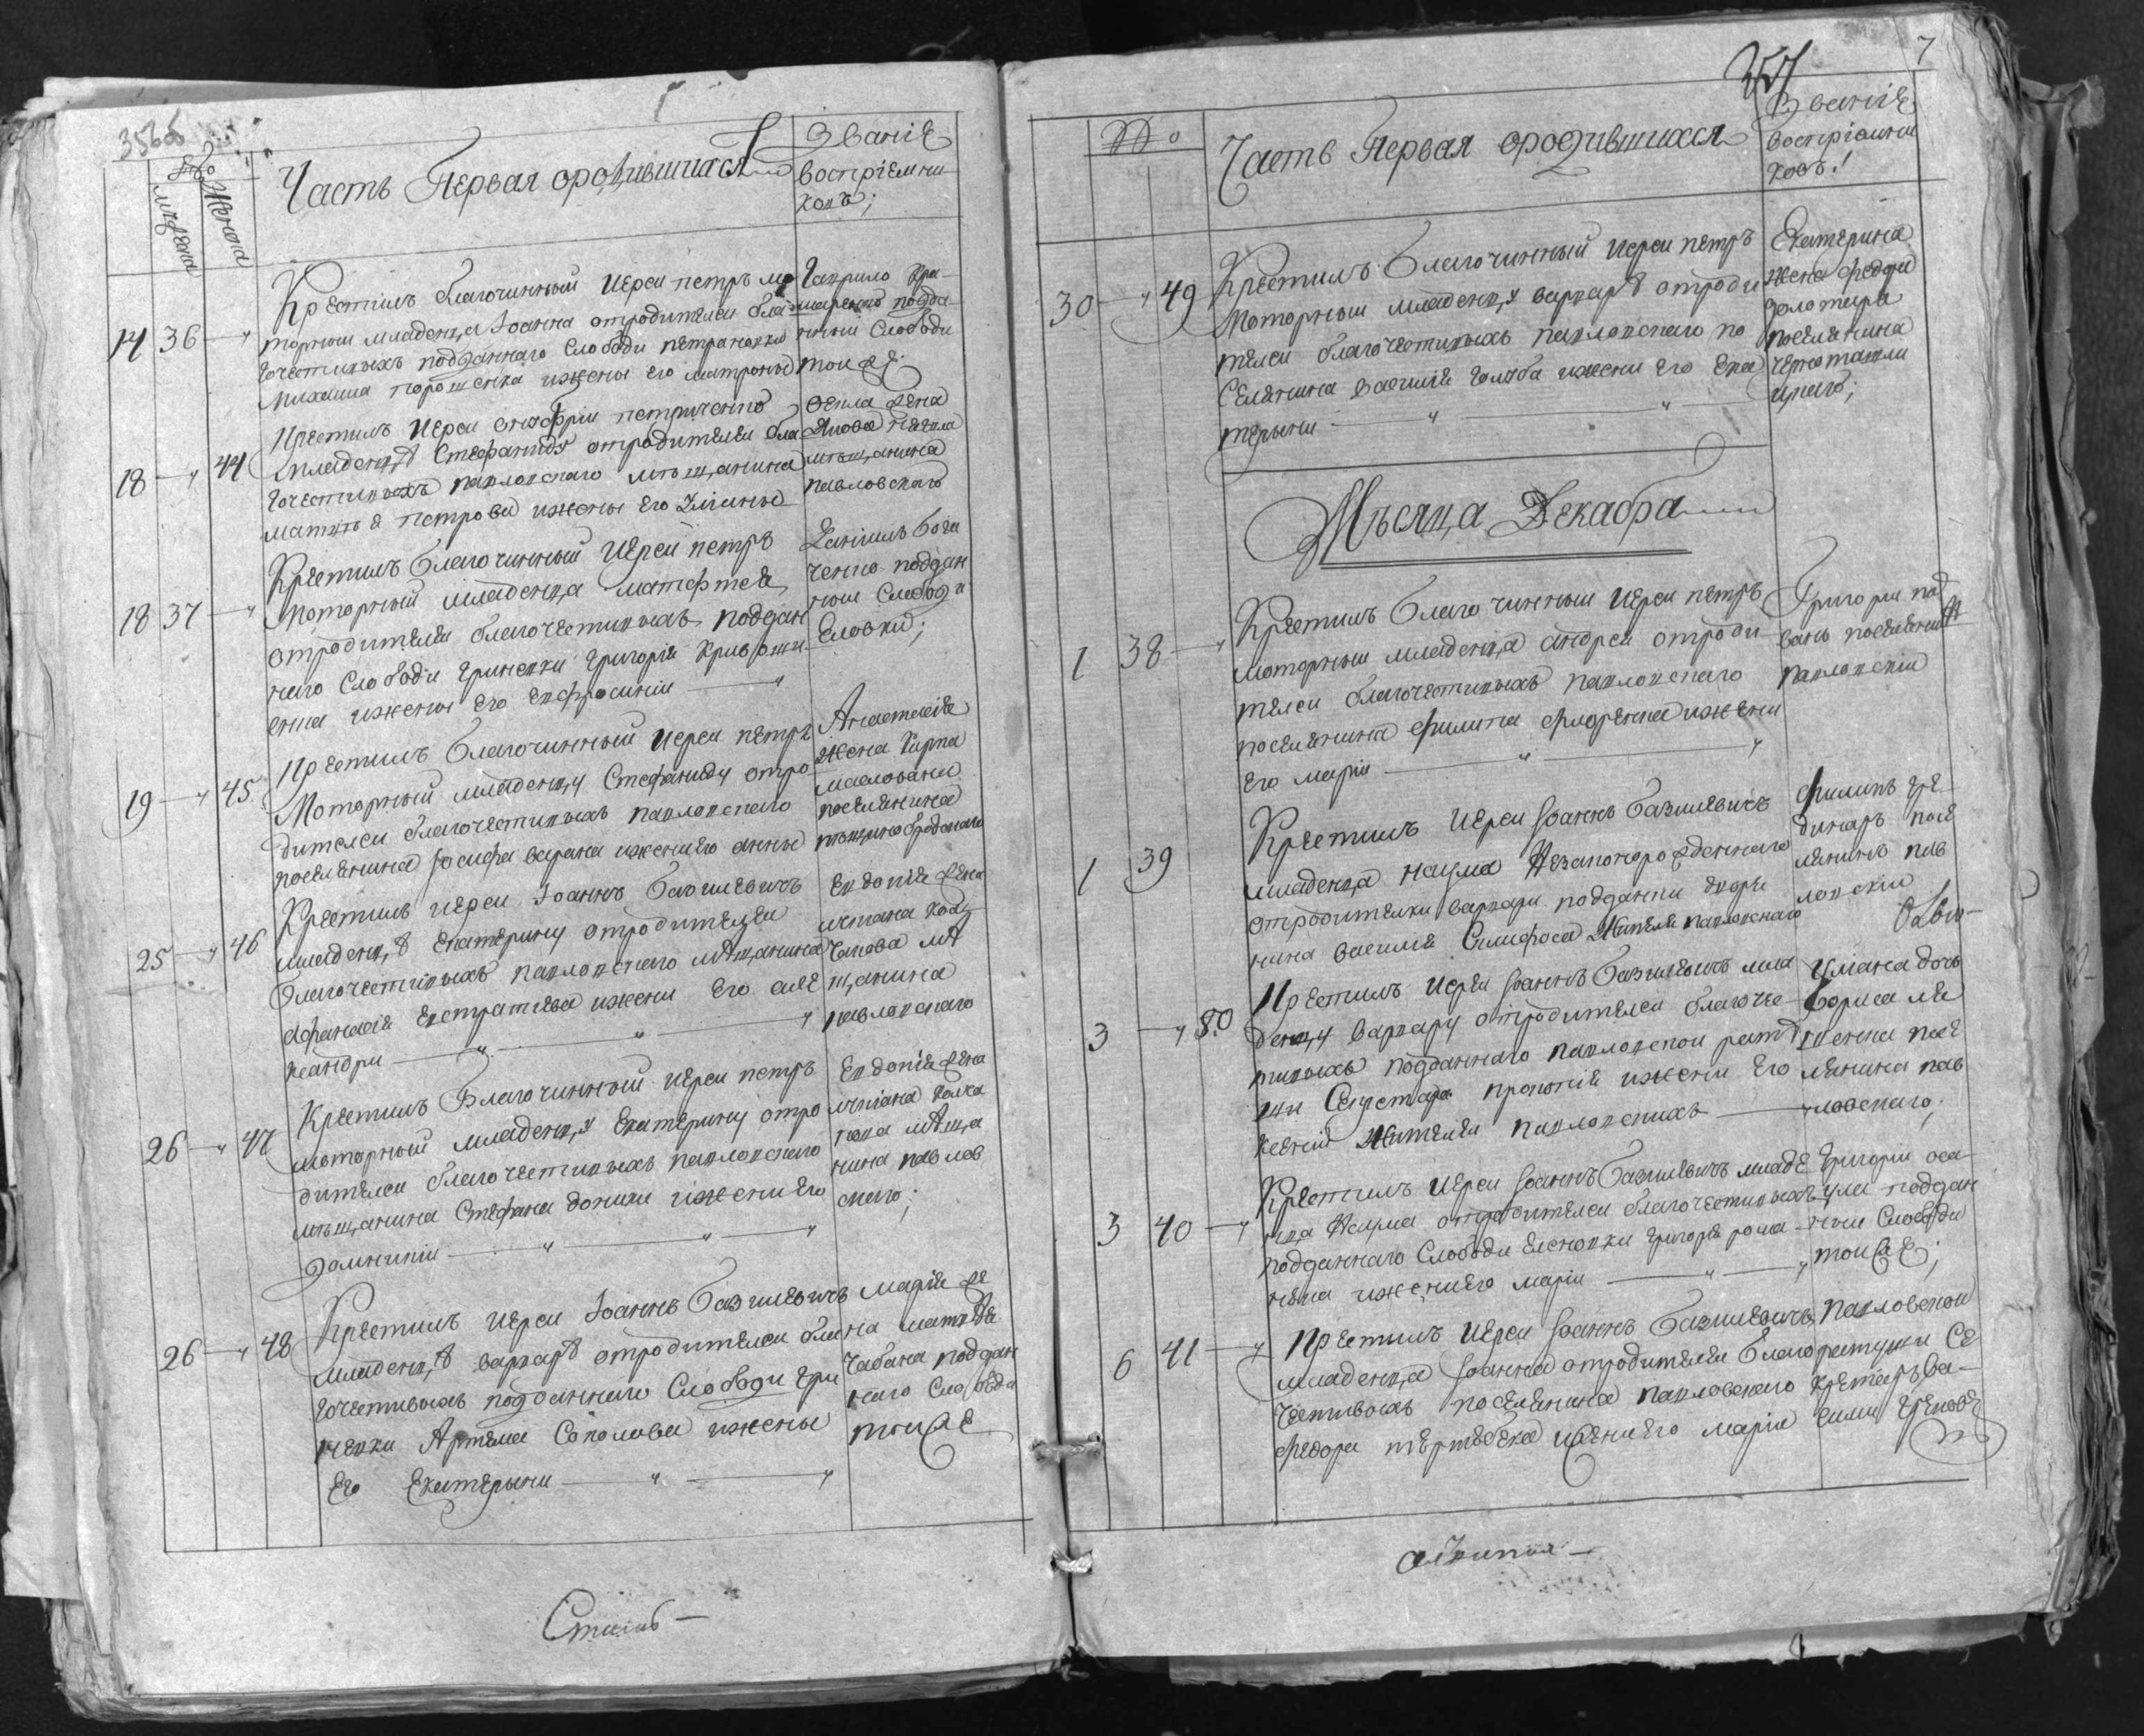 356об
№
мужеска
Женска
Часть Первая ородившихся
Званіе
воспріемни
ковъ;
14 36
Крестилъ благочинный Иереи петръ мо
торный младенца Іоанна отродителеи бла
гочестивыхъ подданнаго Слободи петрановки
Михаила порошенка ижены его матроны
Гаврило Кра
подда
ный Слободи
тои же;
18 44
Крестилъ Иереи онофріи петриченко
младенцѣ Стефаниду отродителеи бла
гочестивыхъ павловскаго мѣщанина
матвѣя петрова ижены его
Фекла жена
мѣщанина
павловскаго
18 37
Крестилъ Благочинный Иереи петръ
Моторный младенца матфтея
отродителеи благочестивыхъ поддан
наго Слободи Гриневки Григорія Кривошеи
енка ижены его евфросиніи
Даніилъ бога
ченко поддан
ный Слободи
Еловки;
19 45
Крестилъ Благочинный Иереи петръ
Моторный младенцу Стефаниду отро
дителеи благочестивыхъ павловскаго
поселянина Іосифа варана ижени его анны
Анастасія
жена Карпа
маслована
поселянина
25 46
Крестилъ Иереи Іоаннъ Базилевичъ
младенцѣ Екатерину отродителеи
благочестивыхъ павловскаго мѣщанина
афанасія Евстратіева ижени Его алеѯ
ксандри
Евдокія жена
мѣ
щанина
павловскаго
26 47
Крестилъ Благочинный Иереи петръ
моторный младенцу Екатерину отро
дителеи благочестивыхъ павловскаго
мѣщанина Стефана доники ижени его
Домникіи
Евдокія жена
мѣща
нина павлов
скаго;
26 48
Крестилъ Иереи Іоаннъ Базилевичъ
младенцѣ варварѣ отродителеи бла
гочестивыхъ подданнаго Слободи Гри
невки Артема Соколова ижены
Его Екатерыни
Марія же
на матвѣя
Чабана поддан
наго Слободи
тои же
7
№
Часть Первая ородившихся
Званіе
воспріемни
ковъ!
30 49
Крестилъ Благочинный Иереи петръ
Моторный младенцу варварѣ отроди
телеи благочестивыхъ павловскаго по
Селянина василія Голуба ижени Его Ека
терыни
Екатерина
жена Федора
Золотара
поселянина
Мѣсяца Декабра
1 38
Крестилъ Благочинный Иереи петръ
моторный младенца андреи отроди
телеи благочестивыхъ павловскаго
поселянина филипа флоренка ижени
Его маріи
Григори под
вань поселянинъ
павловскіи
1 39
Крестилъ Иереи Іоаннъ Базилевичъ
младенца наума Незаконорожденнаго
отродителки варвари подданки дворя
нина василія Жителя павловскаго
филипъ Гре
динаръ посе
лянинъ пав
ловскіи
3 50
Крестилъ Иереи Іоаннъ Базилевичъ мла
денцу варвару отродителеи благоче
стивыхъ подданнаго павловскои рату
ши Секретара прокопія ижени Его
Ксеніи Жителеи павловскихъ
Уліана дочь
Бориса ля
шенка посе
лянина пав
ловскаго;
3 40
Крестилъ Иереи Іоаннъ Базилевичъ младе
нца Наума отродителеи благочестивыхъ
подданнаго Слободи еленовки Григорія рома
нена ижени его маріи
Григоріи оса
ула поддан
ный Слободи
тои же;
6 41
Крестилъ Иереи Іоаннъ Базилевичъ
младенца Іоанна отродителеи Благо
честивыхъ поселянина павловскаго
Федора ижени его маріи
Павловскои
ратушки Се
кретаръ Ва
силіи Греков